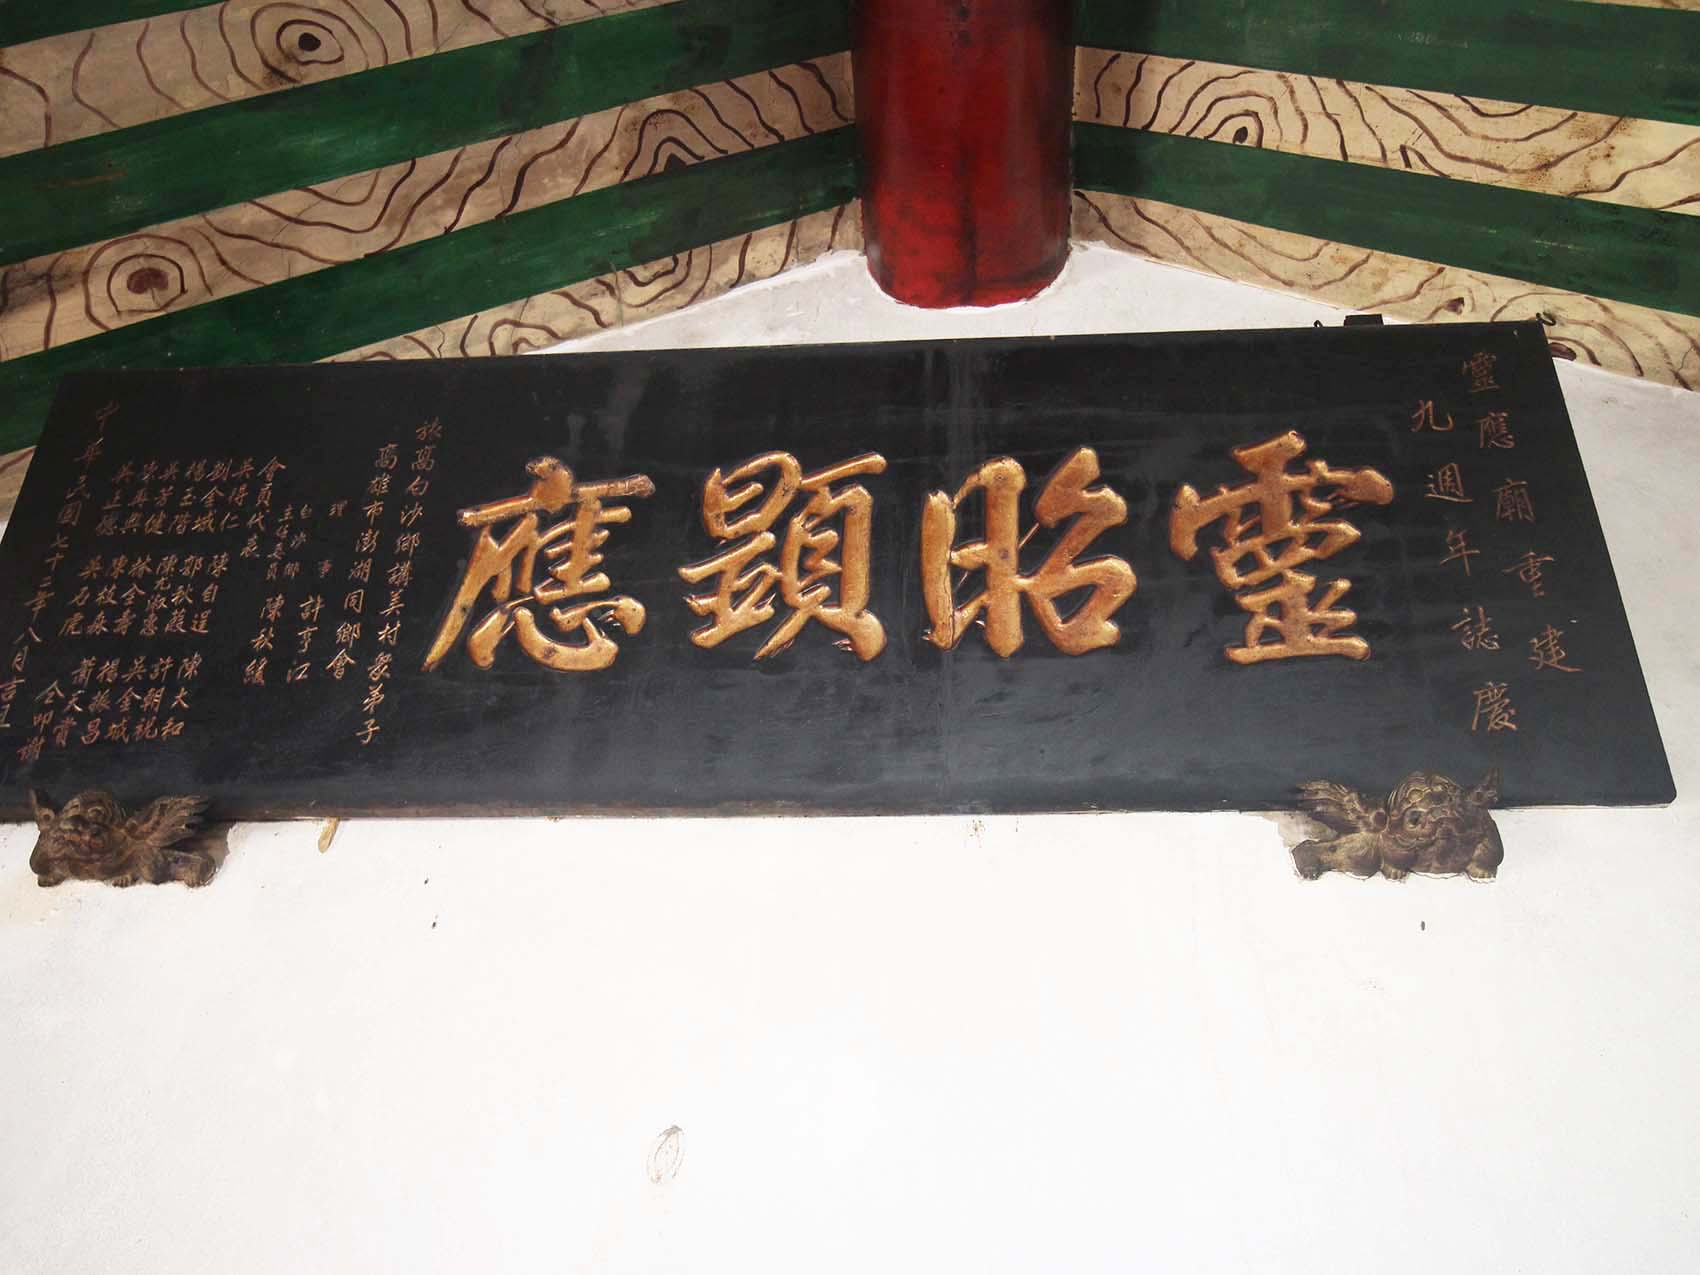 靈應廟重建
九週年誌慶
靈昭顯應
旅高白沙鄉講美村眾弟子
高雄市澎湖同鄉會
理事 許亨江
白沙鄉
主任委員 陳秋緩
會員代表
吳得仁
劉金城 陳自逞 陳大和
楊玉階 郭秋葭 許朝祝
吳芳健 陳九 吳金城
再興 林全壽 楊振昌
吳正德 陳枝森 蕭天賞
吳石虎 仝叩謝
中華民國七十二年八月吉旦